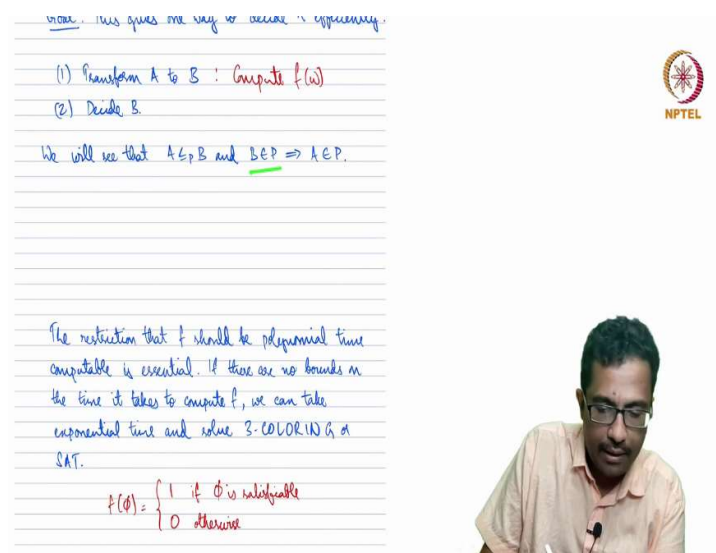 This gives one way to decide efficiently.
(1) Transform A to B : Compute f(w)
(2) Decide B.
We will see that A ≤p B and B ∈ P ⇒ A ∈ P.
The restriction that f should be polynomial time
computable is essential. If there are no bounds on
the time it takes to compute f, we can take
exponential time and solve 3-COLORING or
SAT.
f(ϕ) = { 1 if ϕ is satisfiable
0 otherwise
NPTEL